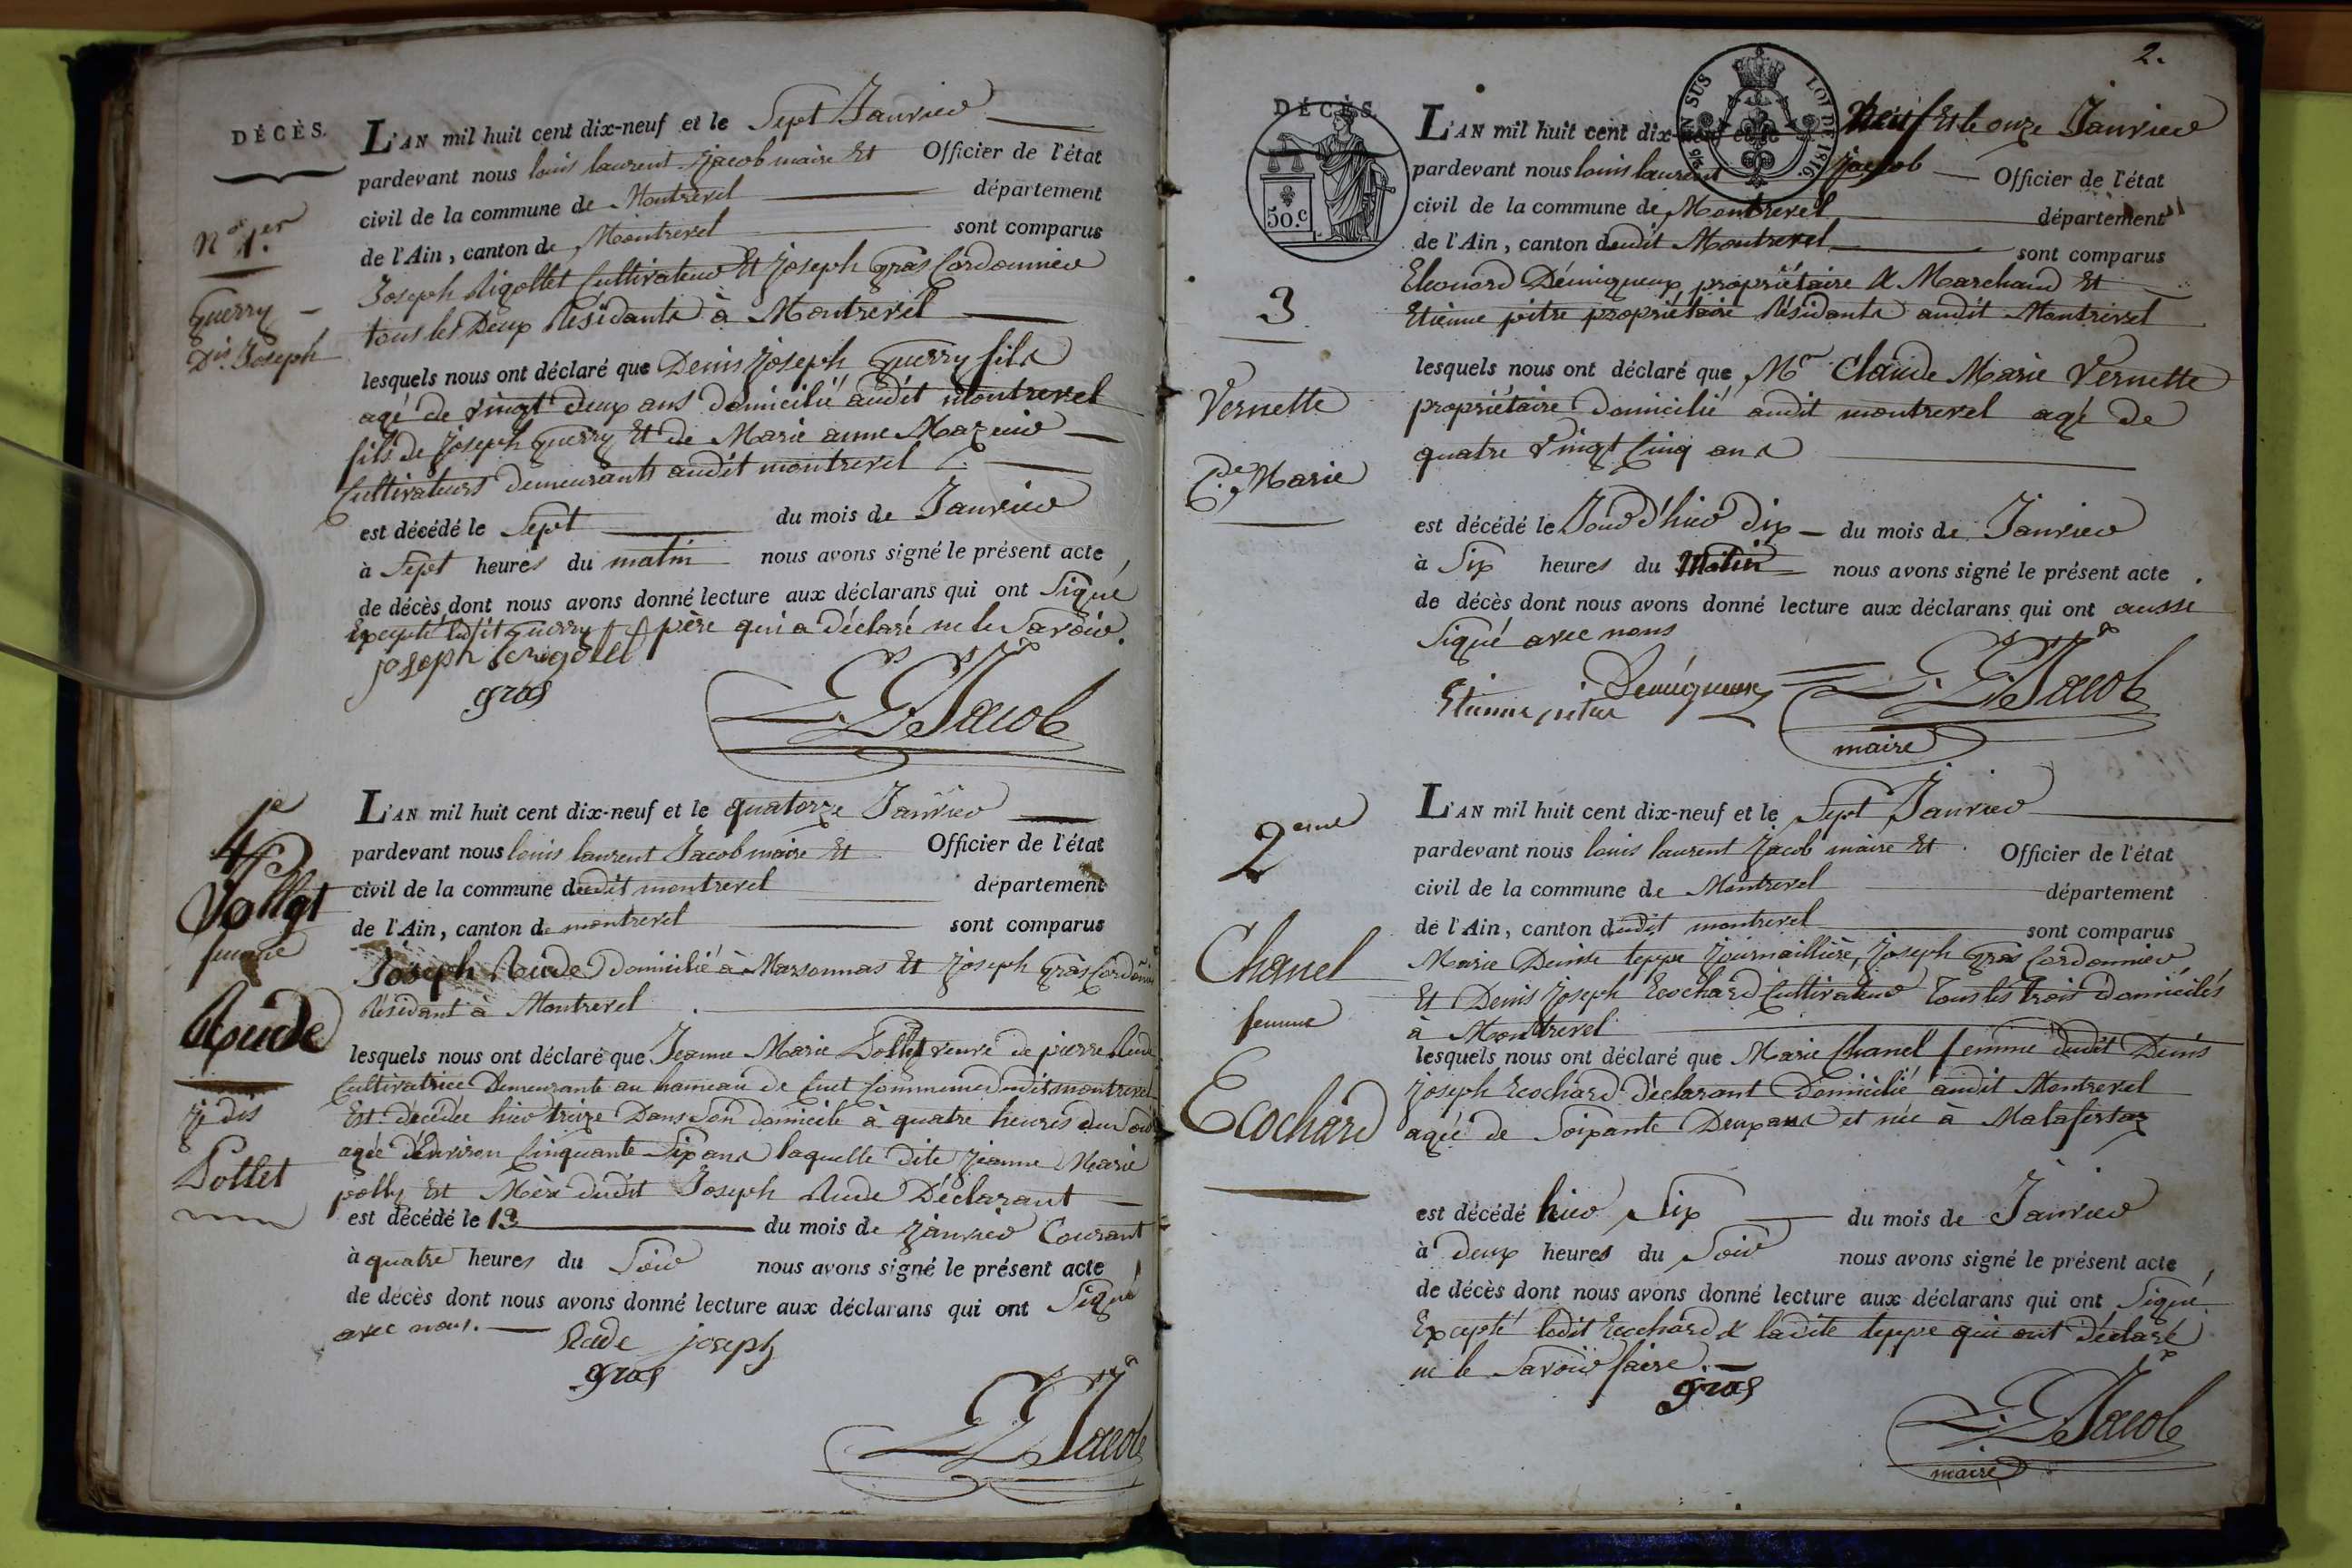 DÉCÈS.
N° 1.er
Guerry
Dis. Joseph
L'AN mil huit cent dix-neuf et le Sept Janvier
pardevant nous louis laurent Jacob maire Et Officier de l'état
civil de la commune de Montrevel département
de l'Ain, canton de Montrevel sont comparus
Joseph Rigollet Cultivateur Et Joseph Gras Cordonnier
tous les Deux Résidants à Montrevel
lesquels nous ont déclaré que Denis Joseph Guerry fils
agé de vingt deux ans domicilié audit Montrevel
fils de Joseph Guerry Et de Marie anne Mazuir
Cultivateurs demeurants audit montrevel
est décédé le Sept du mois de Janvier
à Sept heures du matin nous avons signé le présent acte
de décès dont nous avons donné lecture aux déclarans qui ont Signé
Excepté ledit Guerry père qui a déclaré ne le Savoir.
joseph rigollet
gras
L. L. Jacob
4e
Pollet
femme
Rude
je dis
Pollet
L'AN mil huit cent dix-neuf et le quatorze Janvier
pardevant nous louis laurent Jacob maire Et Officier de l'état
civil de la commune dudit montrevel département
de l'Ain, canton de montrevel sont comparus
Joseph Rude domicilié à Marsonnas Et Joseph Gras Cordonnier
Résidant à Montrevel
lesquels nous ont déclaré que Jeanne Marie Pollet veuve de pierre Rude
Cultivatrice Demeurante au hameau de Cuet Commune dudit montrevel
Est décédée hier treize Dans Son domicile à quatre heures du Soir
agée d'Environ Cinquante Six ans laquelle dite Jeanne Marie
polly Est Mère dudit Joseph Rude Déclarant
est décédé le 13 du mois de Janvier Courant
à quatre heures du Soir nous avons signé le présent acte
de décès dont nous avons donné lecture aux déclarans qui ont Signé
avec nous.
Rude joseph
gras
L. L. Jacob
2.
DÉCÈS.
SUS
LOI DE 1816.
50.c
3
Vernette
Cde Marie
L'AN mil huit cent dix-neuf et le Neuf Et le onze Janvier
pardevant nous louis laurent Jacob Officier de l'état
civil de la commune de Montrevel département
de l'Ain, canton dudit Montrevel sont comparus
Eleonord Démiqueux propriétaire & Marchand Et
Etienne pitre propriétaire Résidants audit Montrevel
lesquels nous ont déclaré que Mr Claude Marie Vernette
propriétaire domicilié audit montrevel agé de
quatre Vingt Cinq ans
est décédé le Jour d'hier dix du mois de Janvier
à Six heures du Matin nous avons signé le présent acte
de décès dont nous avons donné lecture aux déclarans qui ont aussi
Signé avec nous
Etienne pitre
Demiqueux
L. L. Jacob
maire
2eme
Chanel
femme
Ecochard
L'AN mil huit cent dix-neuf et le Sept Janvier
pardevant nous louis laurent Jacob maire Et Officier de l'état
civil de la commune de Montrevel département
de l'Ain, canton dudit montrevel sont comparus
Marie Denise teppe Journaillière, Joseph Gras Cordonnier
Et Denis Joseph Ecochard Cultivateur Tous les Trois domiciliés
à Montrevel
lesquels nous ont déclaré que Marie Chanel femme dudit Denis
Joseph Ecochard déclarant Domicilié audit Montrevel
agée de Soixante Deux ans et née à Malafertaz
est décédé hier Six du mois de Janvier
à deux heures du Soir nous avons signé le présent acte
de décès dont nous avons donné lecture aux déclarans qui ont Signé
Excepté ledit Ecochard & ladite teppe qui ont Déclaré
ne le Savoir faire.
gras
L. L. Jacob
maire